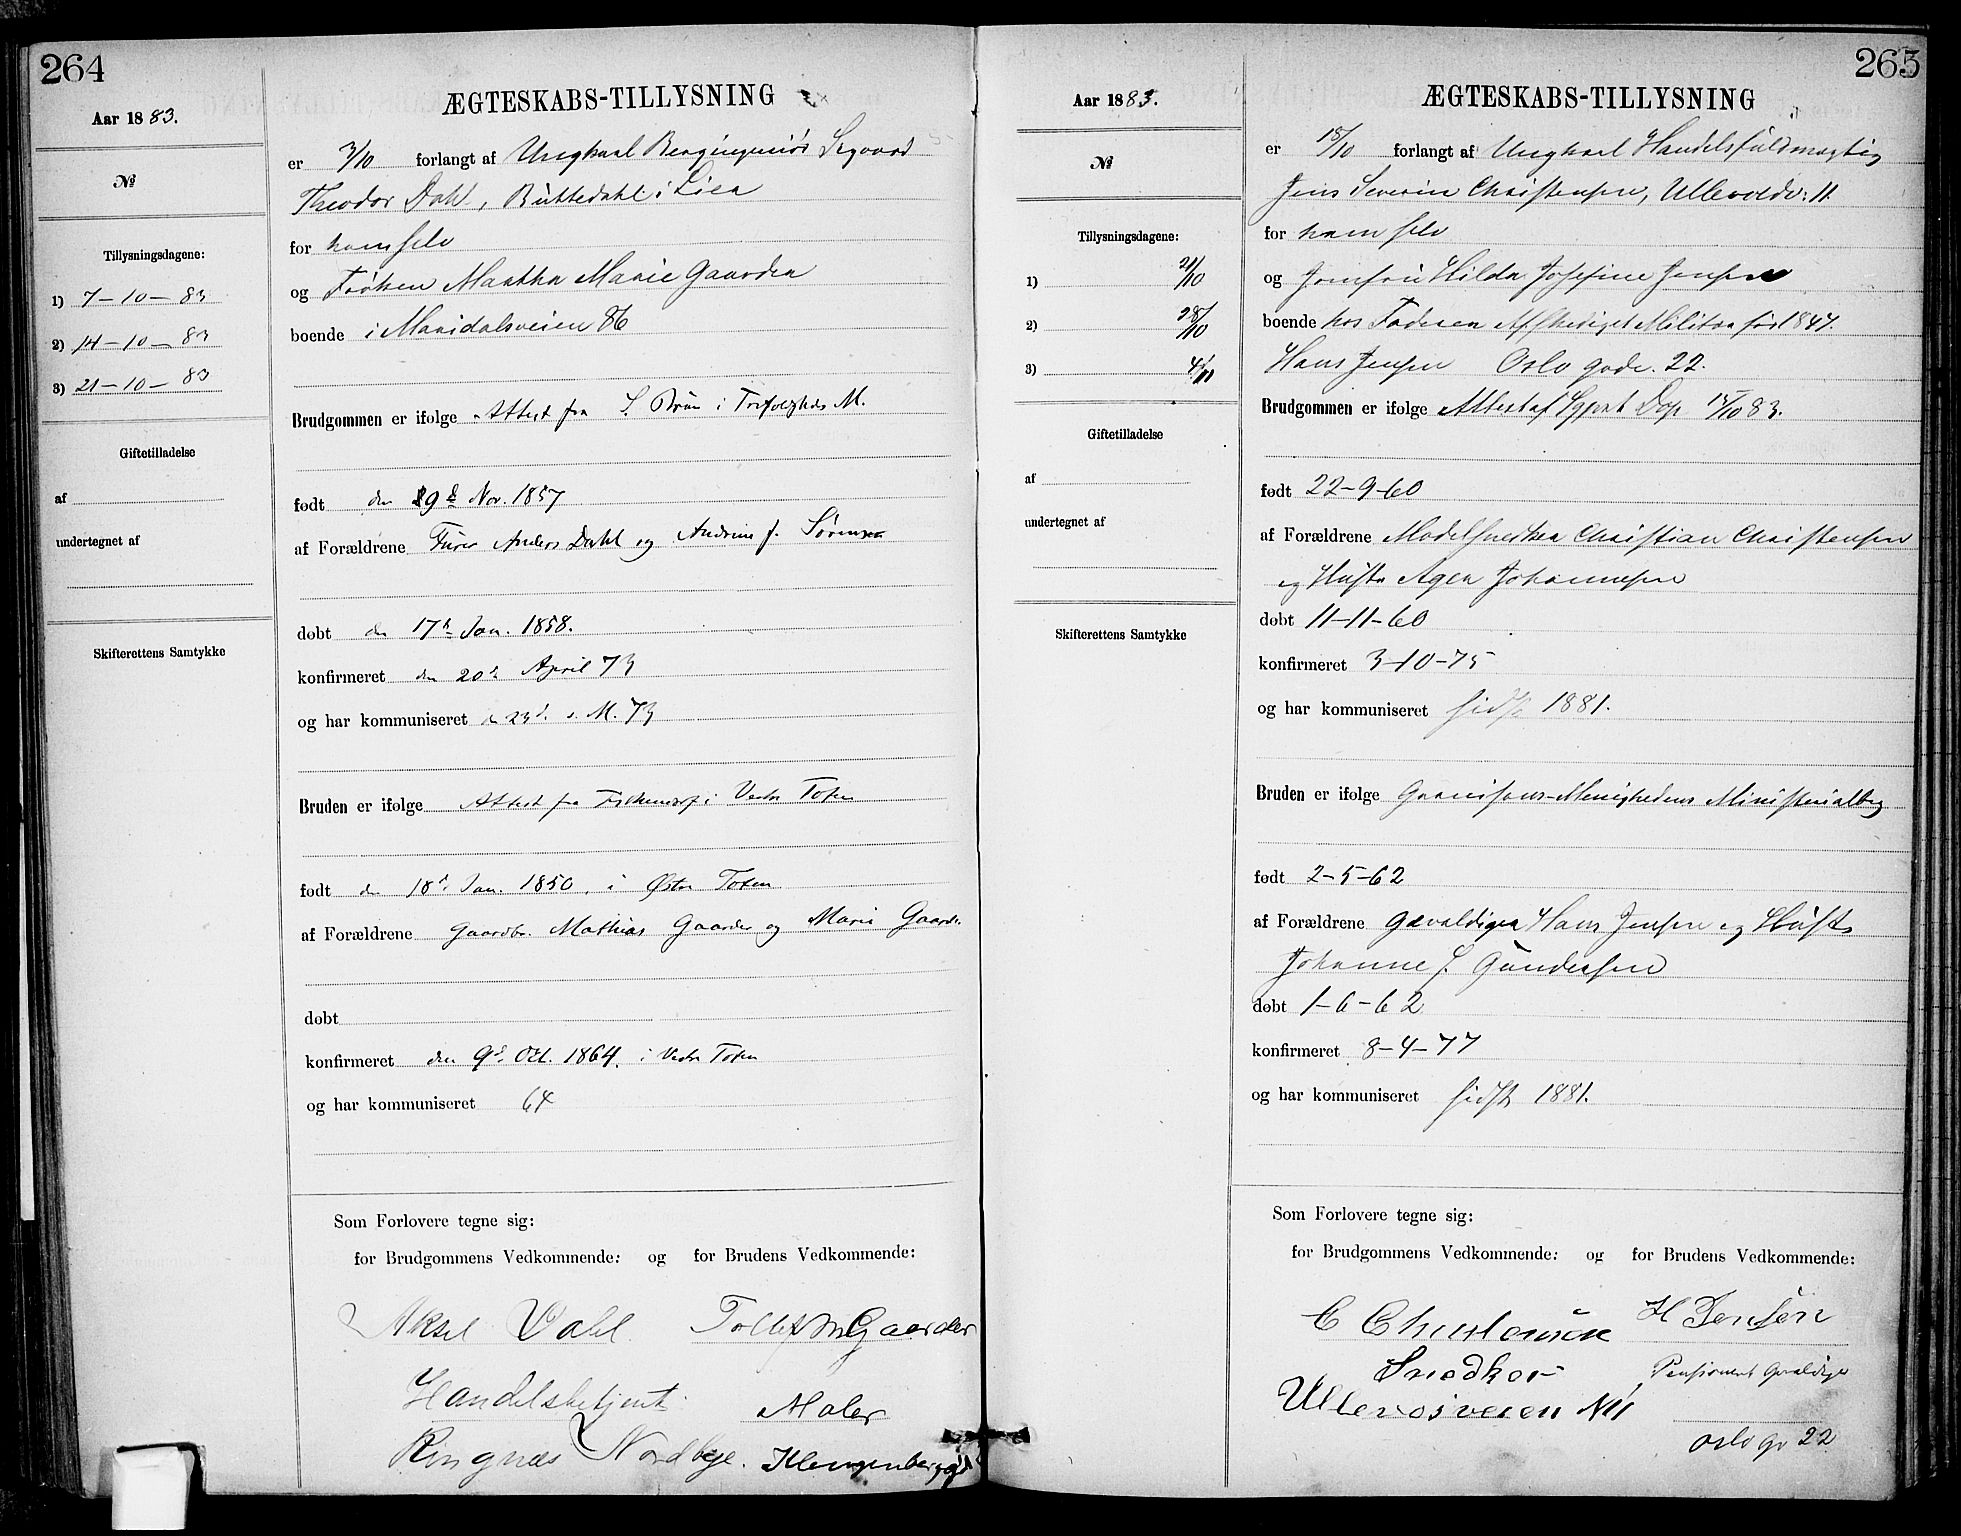 264
Aar 1883.
№
Tillysningsdagene:
1) 7-10-83
2) 14-10-83
3) 21-10-83
Giftetilladelse
af
undertegnet af
Skifterettens Samtykke
ÆGTESKABS-TILLYSNING
er 3/10 forlangt af Ungkarl Bergingeniør Sigvard
Theodor Dahl, i Lier
for ham selv
og Frøken Martha Marie Gaarder
boende i Maridalsveien 86
Brudgommen er ifølge Attest fra S. Bruun i Trefoldigheds M.
født den 29d Nov. 1857
af Forældrene Anders Dahl og Andrine f. Sørensen
døbt den 17d Jan. 1858.
konfirmeret den 20d April 73
og har kommuniseret d 23d s. M. 73
Bruden er ifølge Attest fra i Vestre Toten
født den 18d Jan. 1850, i Østre Toten
af Forældrene Gaardbr. Mathias Gaarder og Marie Gaarder
døbt
konfirmeret den 9d Oct. 1864. i Vestre Toten
og har kommuniseret 64
Som Forlovere tegne sig:
for Brudgommens Vedkommende: og for Brudens Vedkommende:
Aksel Dahl Tollef M Gaarder
Handelsbetjent Maler
Ringnæs Nordbye. Klingenberggd
265
Aar 1883.
№
Tillysningsdagene:
1) 21/10
2) 28/10
3) 4/11
Giftetilladelse
af
undertegnet af
Skifterettens Samtykke
ÆGTESKABS-TILLYSNING
er 15/10 forlangt af Ungkarl Handelsfuldmægtig
Jens Severin Christensen, Ullevoldv: 11.
for ham selv
og Jomfru Hilda Josefine Jensen
boende hos Faderen Afskediget Militær før 1847.
Hans Jensen Oslo gade. 22.
Brudgommen er ifølge Attest af Sgprst Dop 15/10 83.
født 22-9-60
af Forældrene Modelsnedker Christian Christensen
og Hustr Agea Johannesen
døbt 11-11-60
konfirmeret 3-10-75
og har kommuniseret sidst 1881.
Bruden er ifølge Garnisons-Menighedens Ministerialbog
født 2-5-62
af Forældrene Gevaldiger Hans Jensen og Hustr
Johanne f. Gundersen
døbt 1-6-62
konfirmeret 8-4-77
og har kommuniseret sidst 1881.
Som Forlovere tegne sig:
for Brudgommens Vedkommende: og for Brudens Vedkommende:
C Christensen H Jensen
Snedker Pensioneret Gevaldiger
Ullevolsveien N11
Oslo gd 22